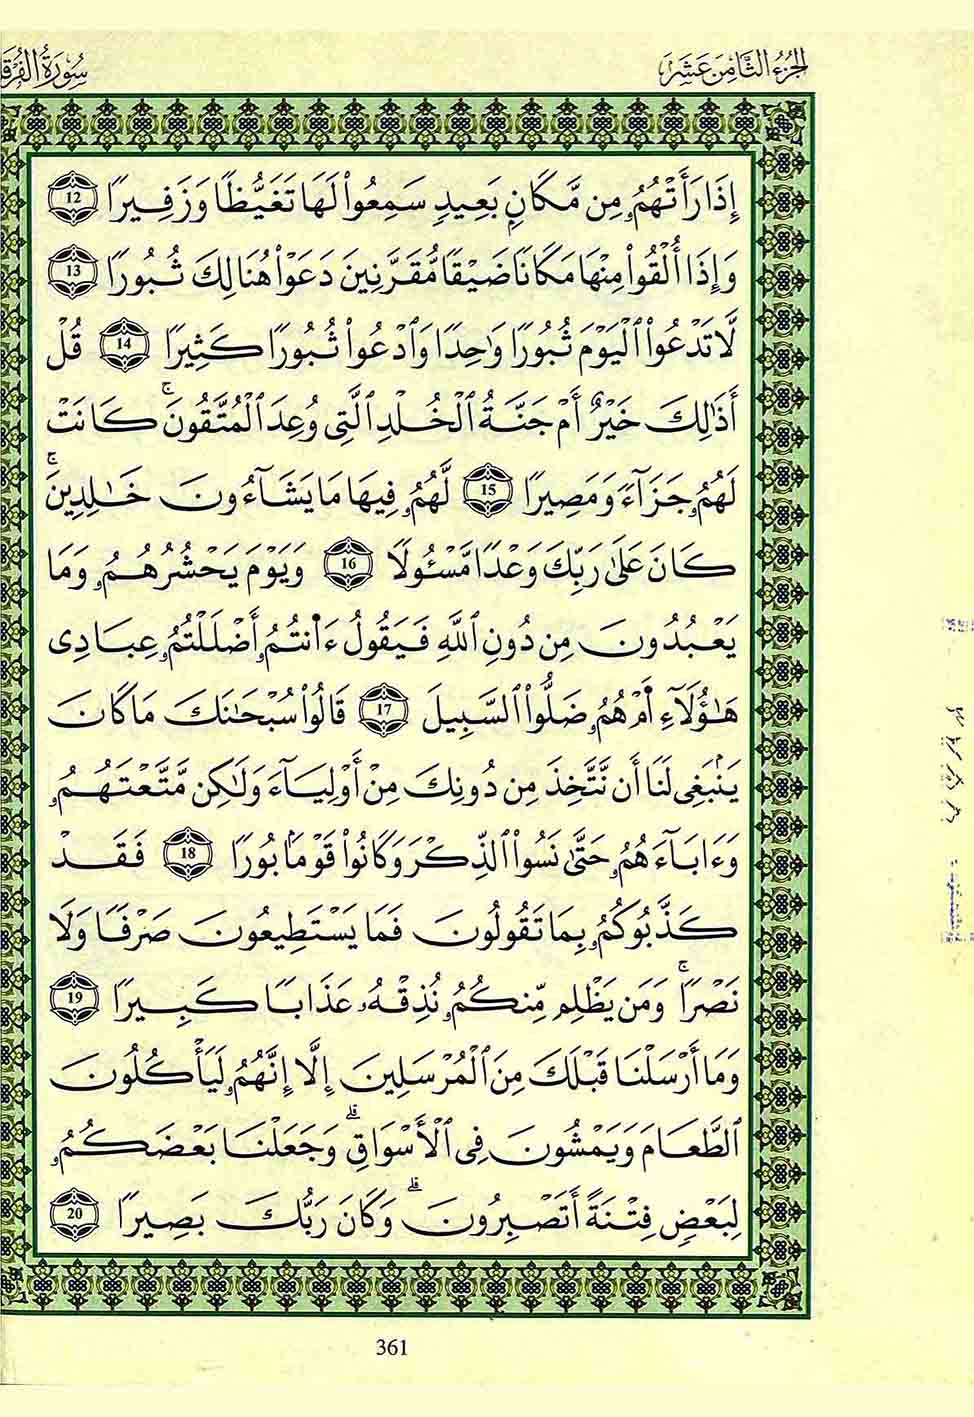 الجزء الثامن عشر
سورة الفرقا
إِذَا رَأَتْهُمُۥ مِن مَّكَانِۭ بَعِيدٍ سَمِعُوا۟ لَهَا تَغَيُّظًا وَزَفِيرًا 12
وَإِذَآ أُلْقُوا۟ مِنْهَا مَكَانًا ضَيْقًا مُّقَرَّنِينَ دَعَوْا۟ هُنَالِكَ ثُبُورًا 13
لَّا تَدْعُوا۟ ٱلْيَوْمَ ثُبُورًا وَٰحِدًا وَٱدْعُوا۟ ثُبُورًا كَثِيرًا 14 قُلْ
أَذَٰلِكَ خَيْرٌ أَمْ جَنَّةُ ٱلْخُلْدِ ٱلَّتِى وُعِدَ ٱلْمُتَّقُونَۚ كَانَتْ
لَهُمُۥ جَزَآءً وَمَصِيرًا 15 لَّهُمُۥ فِيهَا مَا يَشَآءُونَ خَٰلِدِينَۚ
كَانَ عَلَىٰ رَبِّكَ وَعْدًا مَّسْـُٔولًا 16 وَيَوْمَ يَحْشُرُهُمُۥ وَمَا
يَعْبُدُونَ مِن دُونِ ٱللَّهِ فَيَقُولُ ءَا۬نتُمُۥ أَضْلَلْتُمُۥ عِبَادِى
هَٰٓؤُلَآءِ اَ۬مْ هُمُۥ ضَلُّوا۟ ٱلسَّبِيلَ 17 قَالُوا۟ سُبْحَٰنَكَ مَا كَانَ
يَنۢبَغِى لَنَا أَن نَّتَّخِذَ مِن دُونِكَ مِنْ أَوْلِيَآءَ وَلَٰكِن مَّتَّعْتَهُمُۥ
وَءَابَآءَهُمُۥ حَتَّىٰ نَسُوا۟ ٱلذِّكْرَ وَكَانُوا۟ قَوْمَۢا بُورًا 18 فَقَدْ
كَذَّبُوكُمُۥ بِمَا تَقُولُونَ فَمَا يَسْتَطِيعُونَ صَرْفًا وَلَا
نَصْرًاۚ وَمَن يَظْلِم مِّنكُمُۥ نُذِقْهُۥ عَذَابًا كَبِيرًا 19
وَمَا أَرْسَلْنَا قَبْلَكَ مِنَ ٱلْمُرْسَلِينَ إِلَّا إِنَّهُمُۥ لَيَأْكُلُونَ
ٱلطَّعَامَ وَيَمْشُونَ فِى ٱلْأَسْوَاقِۗ وَجَعَلْنَا بَعْضَكُمُۥ
لِبَعْضٍ فِتْنَةً أَتَصْبِرُونَۗ وَكَانَ رَبُّكَ بَصِيرًا 20
361